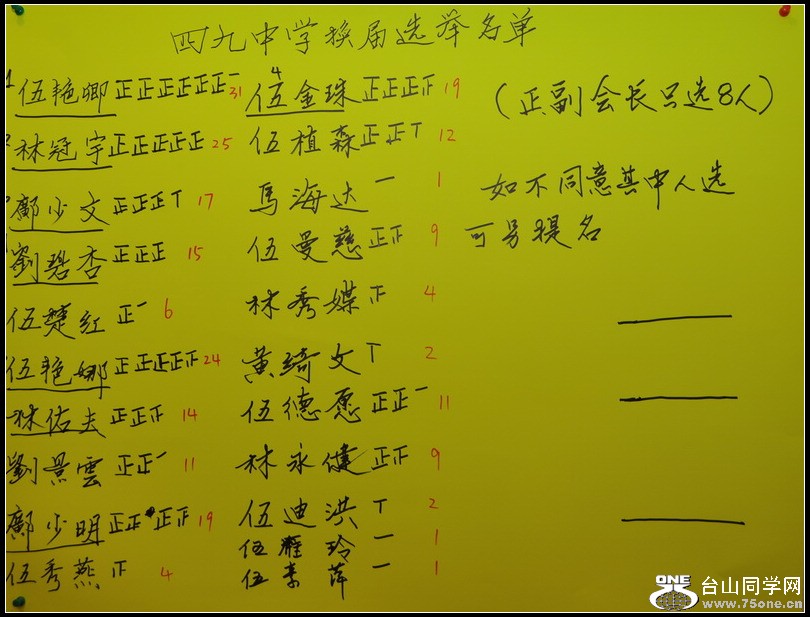 四九中学换届选举名单
1 伍艳卿 正正正正正正一 31
2 林冠宇 正正正正正 25
鄺少文 正正正丅 17
劉碧杏 正正正 15
伍楚红 正一 6
伍艳娜 正正正正正 24
林佑夫 正正正 14
劉景雲 正正一 11
鄺少明 正正正正 19
伍秀燕 正 4
4
伍金珠 正正正正 19
伍植森 正正丅 12
馬海达 一 1
伍曼慈 正正 9
林秀媒 正 4
黄绮文 丅 2
伍德愿 正正一 11
林永健 正正 9
伍迪洪 丅 2
伍雁玲 一 1
伍素萍 一 1
（正副会长只选8人）
如不同意其中人选
可另提名
ONE 台山同学网
www.75one.cn